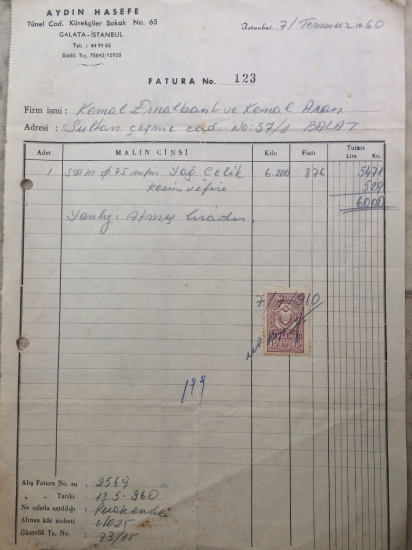 AYDIN HASEFE
Tünel Cad. Kürekçiler Sokak No. 65
GALATA-İSTANBUL
Tel. : 44 91 05
Sicili Tic. 75042/15920
İstanbul, 7/Temmuz 1960
FATURA No. 123
Firm ismi : Kemal Ernalbant ve Kemal Aran
Adresi : Sultan çeşme cad. No: 57/1 BALAT
Adet MALIN CİNSİ Kilo Fiatı Tutarı
Lira Kr.
1 SW III φ 75 Yağ Çelik 6.200 876 5471
Kesim ve fire 529
6000
Yanlız Atmış liradır.
7/7/960
199
Alış Fatura No. su : 2569
Tarihi : 13.5.960
Ne sıfatla satıldığı : Perakende
Alınan kâr nisbeti : %025
Gümrük Ta. No. : 93/15